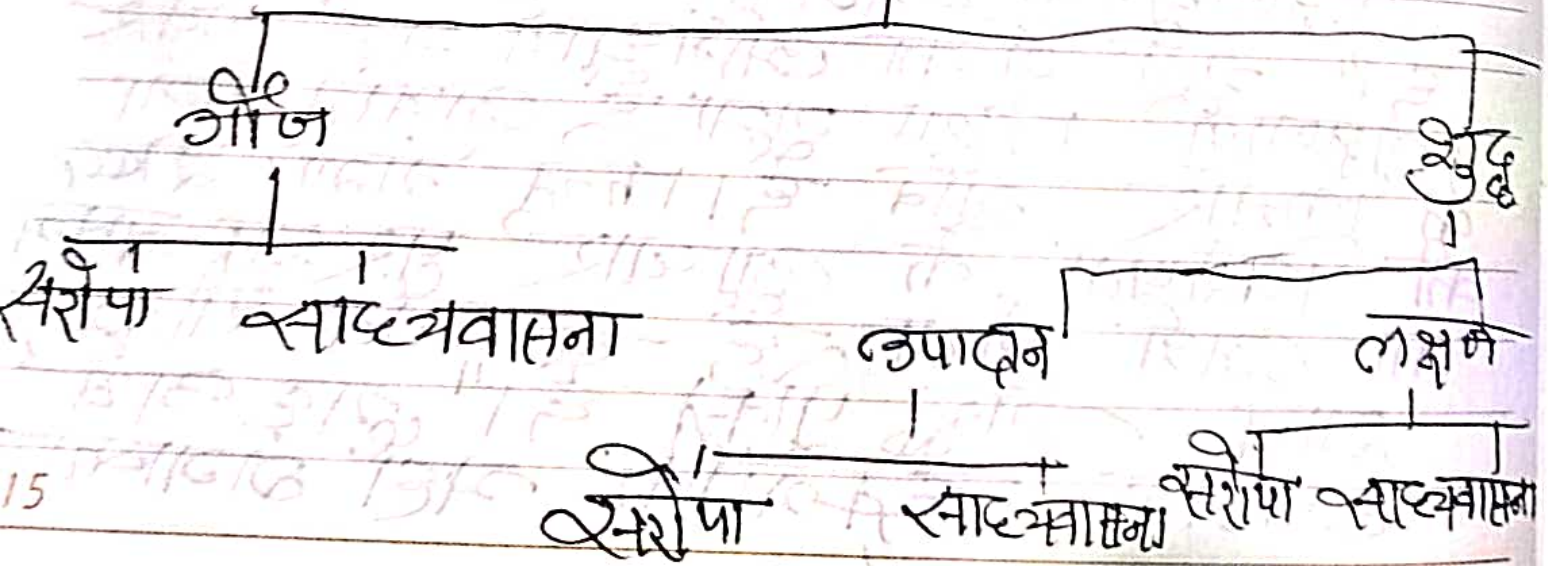 गौण
शुद्ध
सरोपा साध्यवासना
उपादान लक्षण
सरोपा साध्यवासना सरोपा साध्यवासना
15